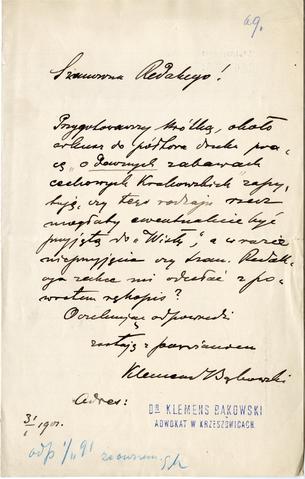 69.
Szanowna Redakcyo!
Przygotowawszy krótką, około
arkusz do półtora druku pra-
cę „o dawnych zabawach
cechowych Krakowskich" zapy-
tuję, czy tego rodzaju rzecz
mogłaby ewentualnie być
przyjętą do „Wisły", a w razie
nieprzyjęcia czy szan. Redak-
cya zechce mi odesłać z po-
wrotem rękopis?
Oczekując odpowiedzi
zostaję z poważaniem
Klemens Bąkowski
Adres:
DR KLEMENS BĄKOWSKI
ADWOKAT W KRZESZOWICACH
3/I 1901.
odp